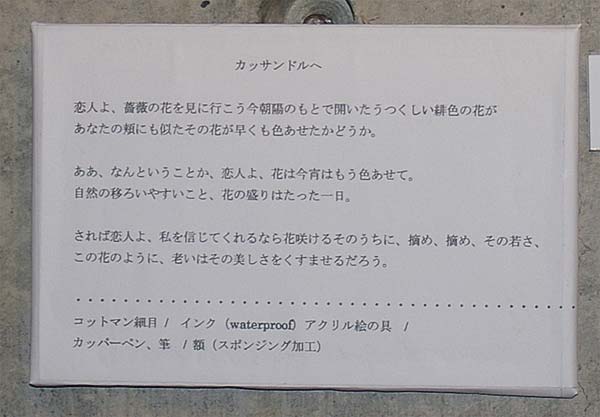 カッサンドルへ
恋人よ、薔薇の花を見に行こう今朝陽のもとで開いたうつくしい緋色の花が
あなたの頬にも似たその花が早くも色あせたかどうか。
ああ、なんということか、恋人よ、花は今宵はもう色あせて。
自然の移ろいやすいこと、花の盛りはたった一日。
されば恋人よ、私を信じてくれるなら花咲けるそのうちに、摘め、摘め、その若さ、
この花のように、老いはその美しさをくすませるだろう。
・・・・・・・・・・・・・・・・・・・・・・・・・・・・・・・・・・・・・・・・
コットマン細目 / インク（waterproof）アクリル絵の具 /
カッパーペン、筆 / 額（スポンジング加工）